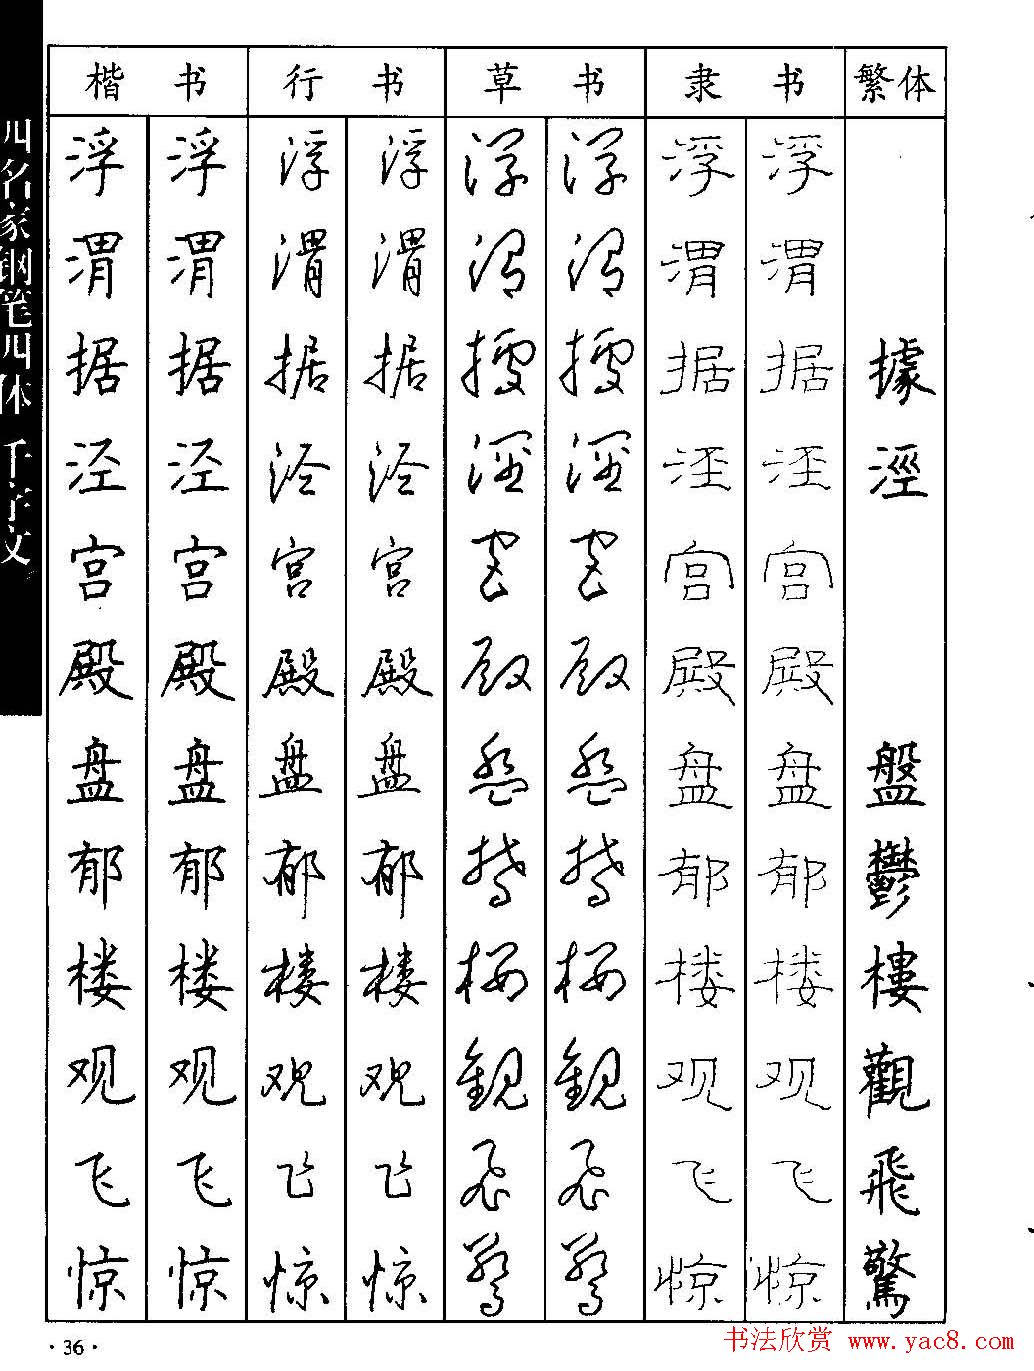 四名家钢笔四体 千字文
楷 书 行 书 草 书 隶 书 繁体
浮 浮 浮 浮 浮 浮 浮 浮
渭 渭 渭 渭 渭 渭 渭 渭
据 据 据 据 據 據 据 据 據
泾 泾 泾 泾 涇 涇 泾 泾 涇
宫 宫 宫 宫 宫 宫 宫 宫
殿 殿 殿 殿 殿 殿 殿 殿
盘 盘 盘 盘 盘 盘 盘 盘 盤
郁 郁 郁 郁 郁 郁 郁 郁 鬱
楼 楼 楼 楼 楼 楼 楼 楼 樓
观 观 观 观 觀 觀 观 观 觀
飞 飞 飞 飞 飛 飛 飞 飞 飛
惊 惊 惊 惊 驚 驚 惊 惊 驚
·36·
书法欣赏 www.yac8.com